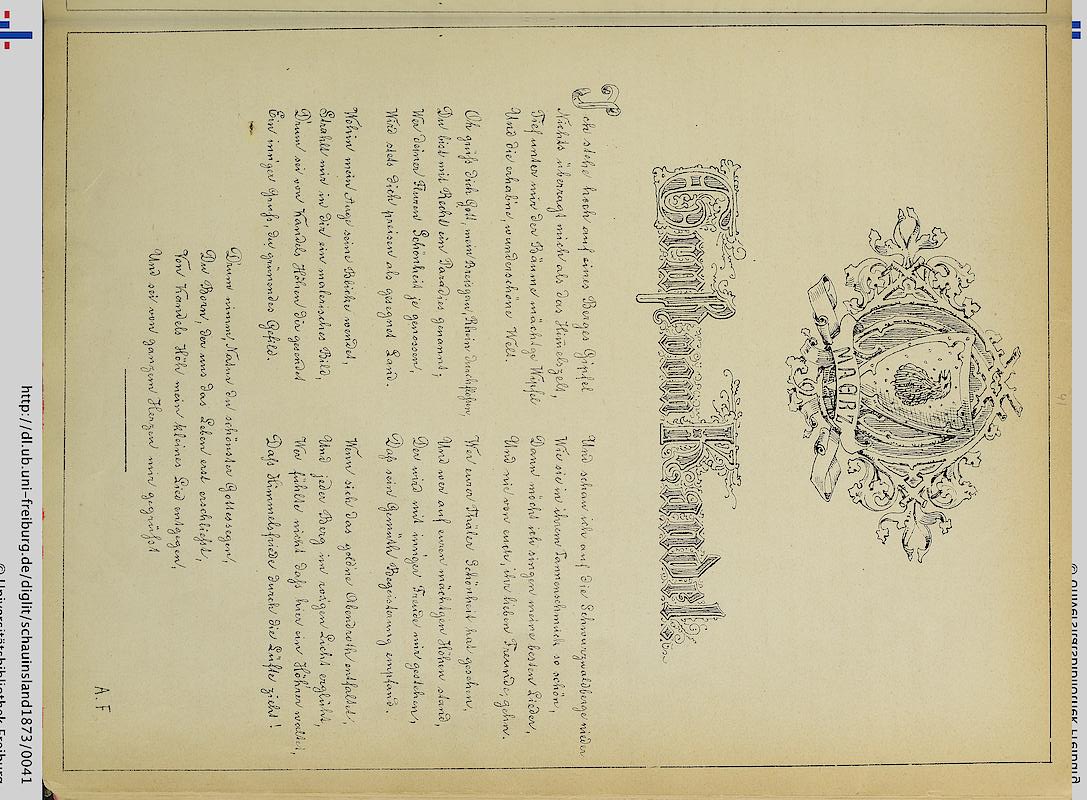 41
MAERZ
Gruß vom Kandel
Ich stehe hoch auf eines Berges Gipfel
Nichts überragt mich als das Himelszelt,
Tief unter mir der Bäume mächt'ge Wipfel
Und die erhabne, wunderschöne Welt.
Oh grüß dich Gott, mein Breisgau, Rhein durchfloßen,
Du bist mit Recht ein Paradies genannt,
Wer deiner Fluren Schönheit je genossen,
Wird stets dich preisen als gesegnet Land.
Wohin mein Auge seine Blicke wendet,
Strahlt mir in dir ein malerisches Bild,
Drum sei von Kandels Höhen dir gesendet
Ein inniger Gruß, du grünendes Gefild.
Und schau ich auf die Schwarzwaldberge nieder
Wie sie in ihrem Tannenschmuck so schön,
Dann möcht ich singen meine besten Lieder,
Und nie von euch, ihr lieben Freunde, gehn.
Wer eurer Thäler Schönheit hat gesehen,
Und wer auf euren mächtgen Höhen stand,
Der wird mit inniger Freude mir gestehen,
Daß sein Gemüth Begeisterung empfand.
Wenn sich das goldne Abendroth entfaltet,
Und jeder Berg im rosgen Licht erglüht,
Wer fühlte nicht daß hier ein Höhrer waltet,
Daß Himmelsfriede durch die Lüfte zieht!
Drum nimm, Natur du schönster Gottessegen,
Du Born, der uns das Leben erst erschließt,
Von Kandels Höh mein kleines Lied entgegen,
Und sei von ganzem Herzen mir gegrüßt
A. F.
http://dl.ub.uni-freiburg.de/diglit/schauinsland1873/0041
© Universitätsbibliothek Freiburg